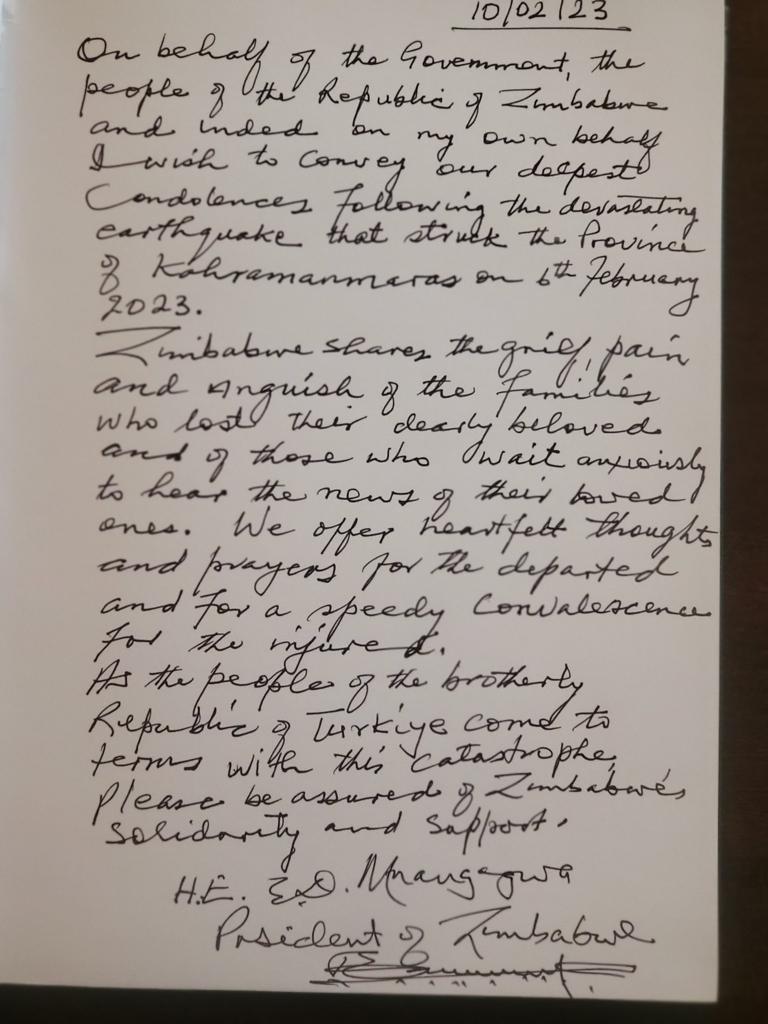 10/02/23
On behalf of the Government, the
people of the Republic of Zimbabwe
and inded on my own behalf
I wish to convey our deepest
Condolences following the devastating
earthquake that struck the Province
of Kahramanmaras on 6th February
2023.
Zimbabwe shares the grief, pain
and anguish of the families
who lost their dearly beloved
and of those who wait anxiously
to hear the news of their loved
ones. We offer heartfelt thoughts
and prayers for the departed
and for a speedy Convalescence
for the injured.
As the people of the brotherly
Republic of Türkiye come to
terms with this catastrophe,
Please be assured of Zimbabwe's
solidarity and support.
H.E. E.D. Mnangagwa
President of Zimbabwe